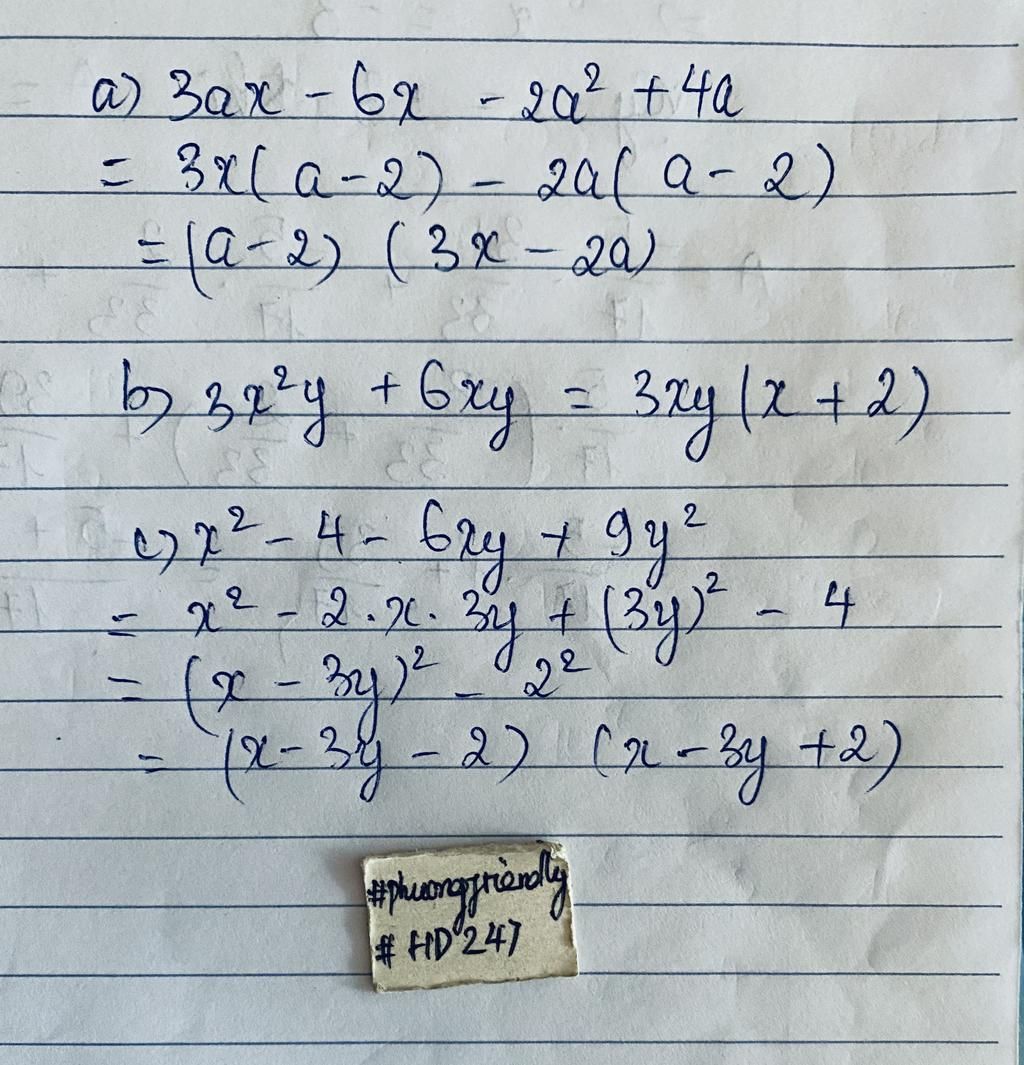 a) 3ax - 6x - 2a² + 4a
= 3x(a - 2) - 2a(a - 2)
= (a - 2) (3x - 2a)
b) 3x²y + 6xy = 3xy(x + 2)
c) x² - 4 - 6xy + 9y²
= x² - 2.x.3y + (3y)² - 4
= (x - 3y)² - 2²
= (x - 3y - 2) (x - 3y + 2)
#phuongfriendly
# HD 247